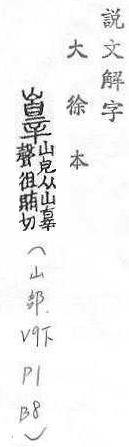 說文解字
大徐本
山皃从山辠
聲徂賄切
(山部 V9下 P1 B8)